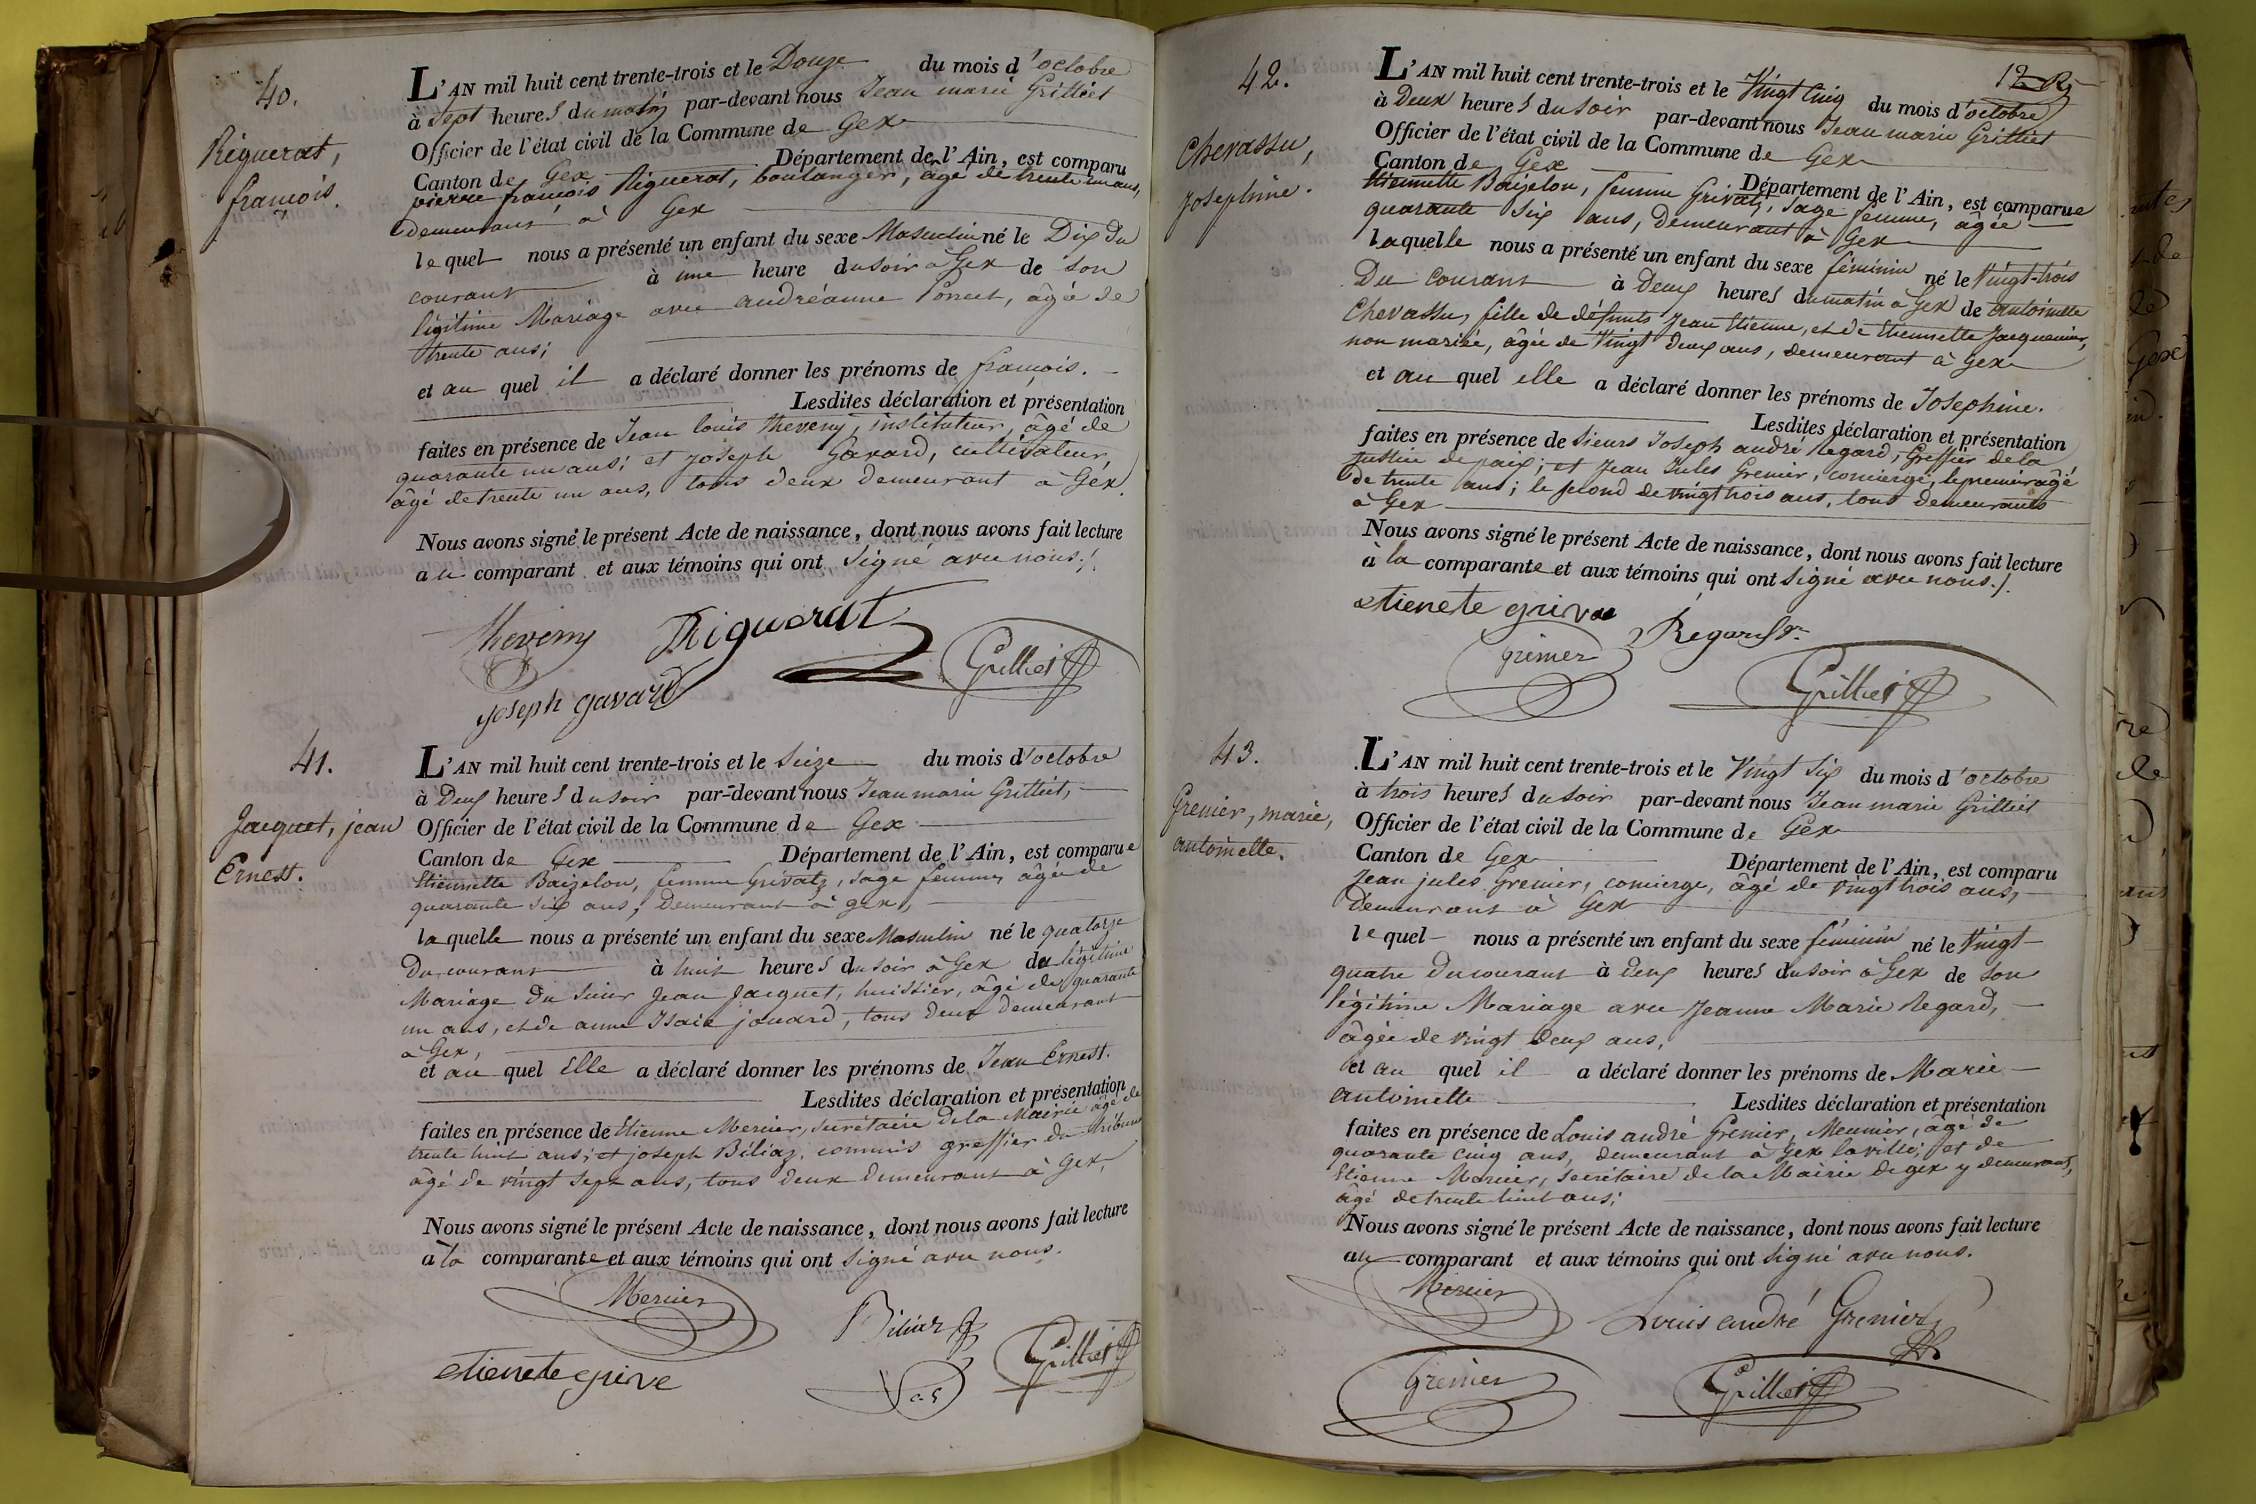 40.
Riguerat,
françois.
L'AN mil huit cent trente-trois et le Douze du mois d'octobre
à Sept heures du matin par-devant nous Jean marie Grilliet
Officier de l'état civil de la Commune de Gex
Canton de Gex Département de l'Ain, est comparu
pierre françois Riguerat, boulanger, âgé de trente un ans,
demeurant à Gex
lequel nous a présenté un enfant du sexe Masculin né le Dix du
courant à une heure du soir à Gex de son
légitime Mariage avec andréanne Poncet, âgée de
trente ans;
et au quel il a déclaré donner les prénoms de françois.
Lesdites déclaration et présentation
faites en présence de Jean louis theveny, instituteur, âgé de
quarante un ans; et joseph Gavard, cultivateur,
âgé de trente un ans, tous deux demeurant à Gex.
Nous avons signé le présent Acte de naissance, dont nous avons fait lecture
au comparant et aux témoins qui ont Signé avec nous./.
theveny Riguerat Grilliet
joseph gavard
41.
Jacquet, jean
Ernest.
L'AN mil huit cent trente-trois et le Seize du mois d'octobre
à Deux heures du soir par-devant nous Jean marie Grilliet,
Officier de l'état civil de la Commune de Gex
Canton de Gex Département de l'Ain, est comparue
Etiennette Baizelon, femme Grivatz, sage femme, âgée de
quarante six ans, demeurant à gex,
laquelle nous a présenté un enfant du sexe Masculin né le quatorze
Du courant à huit heures du soir à Gex du légitime
Mariage du Sieur Jean Jacquet, huissier, âgé de quarante
un ans, et de anne Isaïe jouard, tous deux demeurant
à Gex,
et au quel Elle a déclaré donner les prénoms de Jean Ernest.
Lesdites déclaration et présentation
faites en présence de Etienne Mercier, secrétaire de la Mairie âgé de
trente huit ans; et joseph Béliaz, commis greffier du tribunal
âgé de vingt sept ans, tous deux demeurant à Gex,
Nous avons signé le présent Acte de naissance, dont nous avons fait lecture
à la comparante et aux témoins qui ont Signé avec nous.
Mercier
etienete grive Grilliet
12
42.
Chevassu,
Josephine.
L'AN mil huit cent trente-trois et le Vingt Cinq du mois d'octobre
à Deux heures du soir par-devant nous Jean marie Grilliet
Officier de l'état civil de la Commune de Gex
Canton de Gex Département de l'Ain, est comparue
Etiennette Baizelon, femme Grivatz, sage femme, âgée
quarante six ans, demeurant à Gex
laquelle nous a présenté un enfant du sexe féminin né le Vingt-trois
Du courant à Deux heures du matin à Gex de antoinette
Chevassu, fille de défunts Jean Etienne, et de Etiennette Jacquemier,
non mariée, âgée de Vingt deux ans, demeurant à Gex
et au quel elle a déclaré donner les prénoms de Josephine.
Lesdites déclaration et présentation
faites en présence de Sieurs Joseph andré Regard, Greffier de la
justice de paix; et Jean Jules Grenier, concierge, le premier âgé
de trente ans; le second de vingt trois ans, tous demeurants
à Gex
Nous avons signé le présent Acte de naissance, dont nous avons fait lecture
à la comparante et aux témoins qui ont Signé avec nous./.
etienete griva Regard
Grenier Grilliet
43.
Grenier, marie,
antoinette.
L'AN mil huit cent trente-trois et le Vingt Six du mois d'octobre
à trois heures du soir par-devant nous Jean marie Grilliet
Officier de l'état civil de la Commune de Gex
Canton de Gex Département de l'Ain, est comparu
Jean jules Grenier, concierge, âgé de vingt trois ans,
demeurant à Gex
lequel nous a présenté un enfant du sexe féminin né le Vingt
quatre du courant à deux heures du soir à Gex de son
légitime Mariage avec Jeanne Marie Regard,
âgée de vingt deux ans,
et au quel il a déclaré donner les prénoms de Marie
antoinette Lesdites déclaration et présentation
faites en présence de Louis andré Grenier, Meunier, âgé de
quarante cinq ans, demeurant à Gex la ville, et de
Etienne Mercier, secrétaire de la Mairie de gex y demeurant,
âgé de trente huit ans;
Nous avons signé le présent Acte de naissance, dont nous avons fait lecture
au comparant et aux témoins qui ont Signé avec nous.
Mercier Louis andré Grenier
Grenier Grilliet